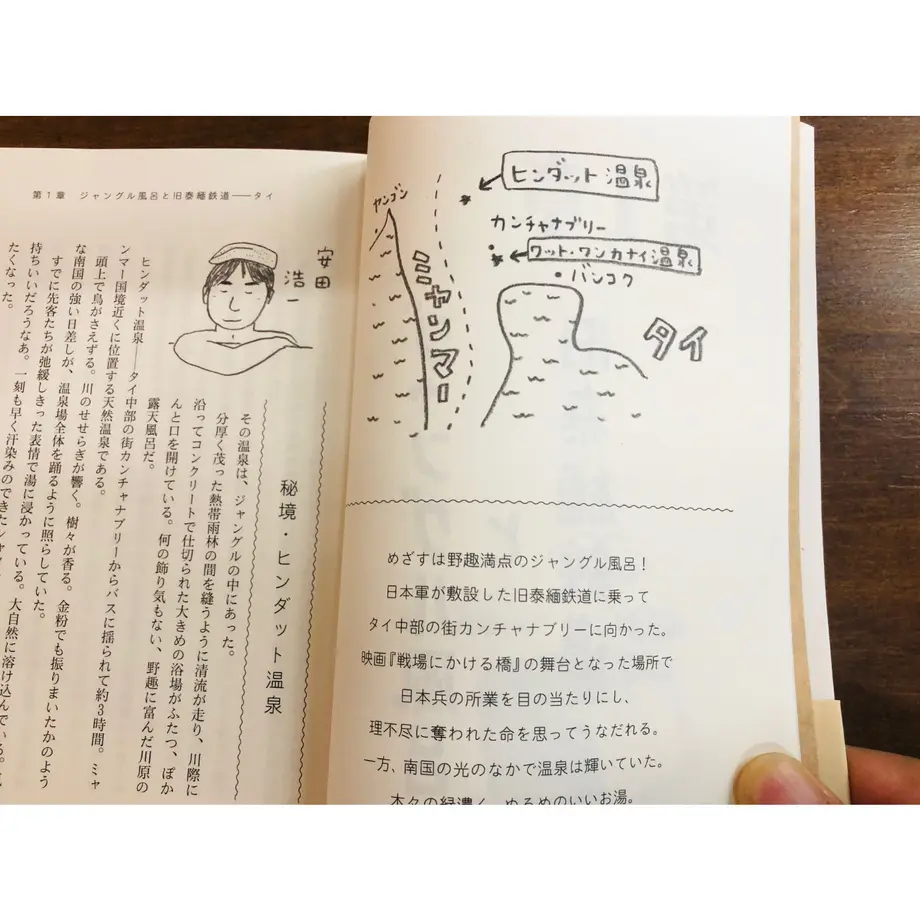 ヒンダット温泉
ヤンゴン
カンチャナブリー
ワット・ワンカナイ温泉
バンコク
ミャンマー
タイ
めざすは野趣満点のジャングル風呂！
日本軍が敷設した旧泰緬鉄道に乗って
タイ中部の街カンチャナブリーに向かった。
映画『戦場にかける橋』の舞台となった場所で
日本兵の所業を目の当たりにし、
理不尽に奪われた命を思ってうなだれる。
一方、南国の光のなかで温泉は輝いていた。
木々の緑濃く、ぬるめのいいお湯。
第1章　ジャングル風呂と旧泰緬鉄道――タイ
安田
浩一
秘境・ヒンダット温泉
その温泉は、ジャングルの中にあった。
分厚く茂った熱帯雨林の間を縫うように清流が走り、川際に
沿ってコンクリートで仕切られた大きめの浴場がふたつ、ぽか
んと口を開けている。何の飾り気もない、野趣に富んだ川原の
露天風呂だ。
ヒンダット温泉――タイ中部の街カンチャナブリーからバスに揺られて約3時間。ミャ
ンマー国境近くに位置する天然温泉である。
頭上で鳥がさえずる。川のせせらぎが響く。樹々が香る。金粉でも振りまいたかのよう
な南国の強い日差しが、温泉場全体を踊るように照らしていた。
すでに先客たちが弛緩しきった表情で湯に浸かっている。大自然に溶け込んでいる。
持ちいいだろうなあ。一刻も早く汗染みのできた
たくなった。